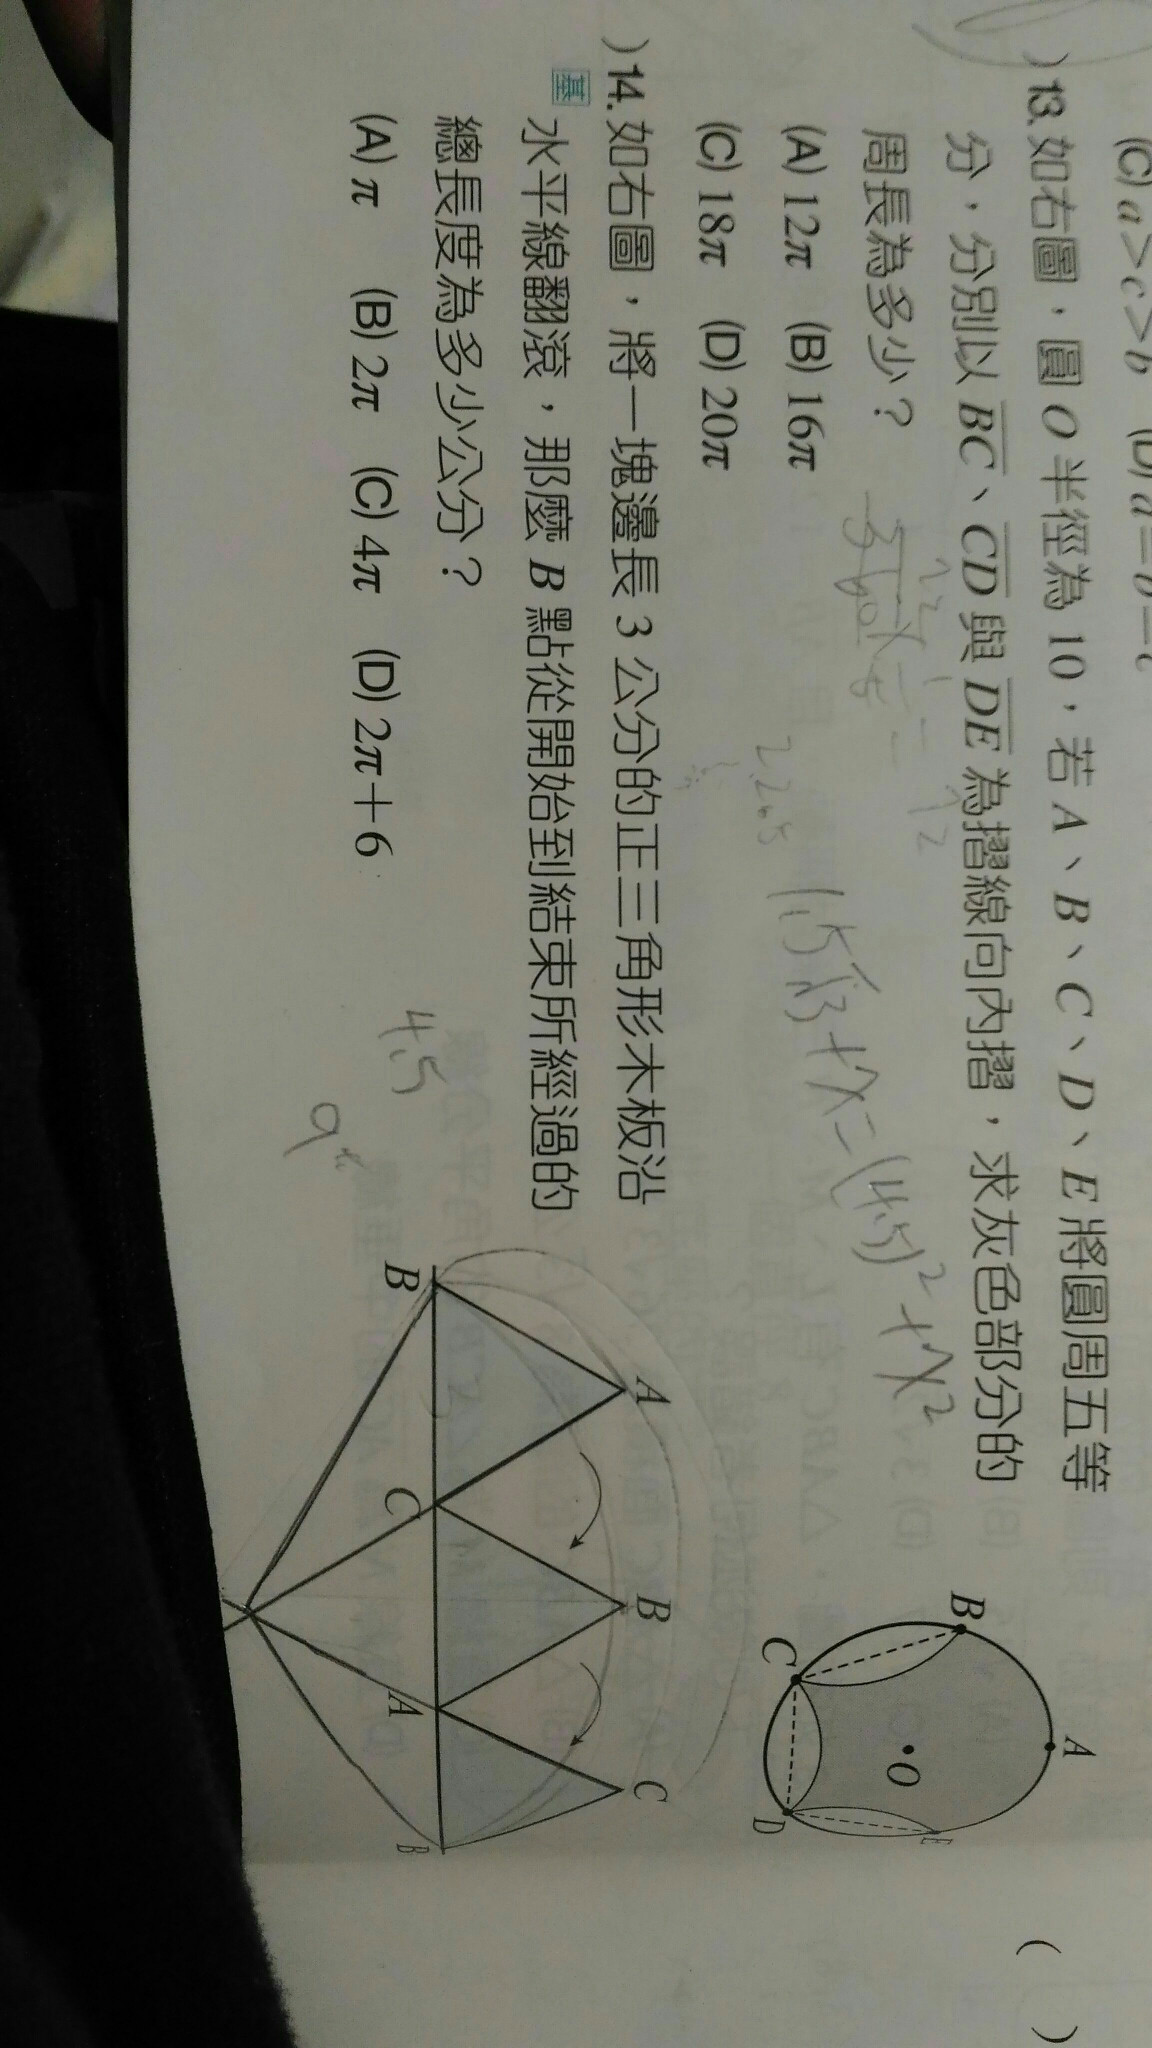 (C) a＞c＞b (D) a＝b＝c
)13.如右圖，圓 O 半徑為 10，若 A、B、C、D、E 將圓周五等
分，分別以 BC、CD 與 DE 為摺線向內摺，求灰色部分的
周長為多少？
(A) 12π (B) 16π
(C) 18π (D) 20π
A
B
O
C
D
E
)14.如右圖，將一塊邊長 3 公分的正三角形木板沿
基 水平線翻滾，那麼 B 點從開始到結束所經過的
總長度為多少公分？
(A) π (B) 2π (C) 4π (D) 2π＋6
A B C
B C A B
1.5√3+x=(4.5)²+x²
4.5
9
( )